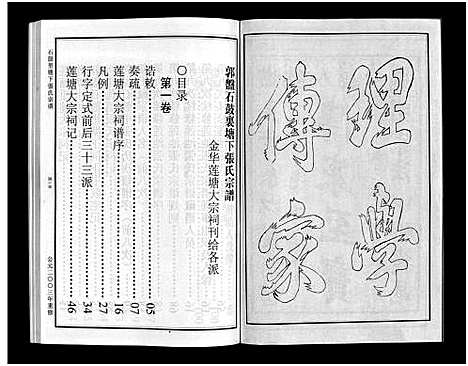 理學
傳家
郭盤石鼓裏塘下張氏宗譜
金华莲塘大宗祠刊给各派
〇目录
第一卷
诰敕……05
奏疏……07
莲塘大宗祠谱序……16
凡例……27
行字定式前后三十三派……34
莲塘大宗祠记……46
公元二〇〇三年重修